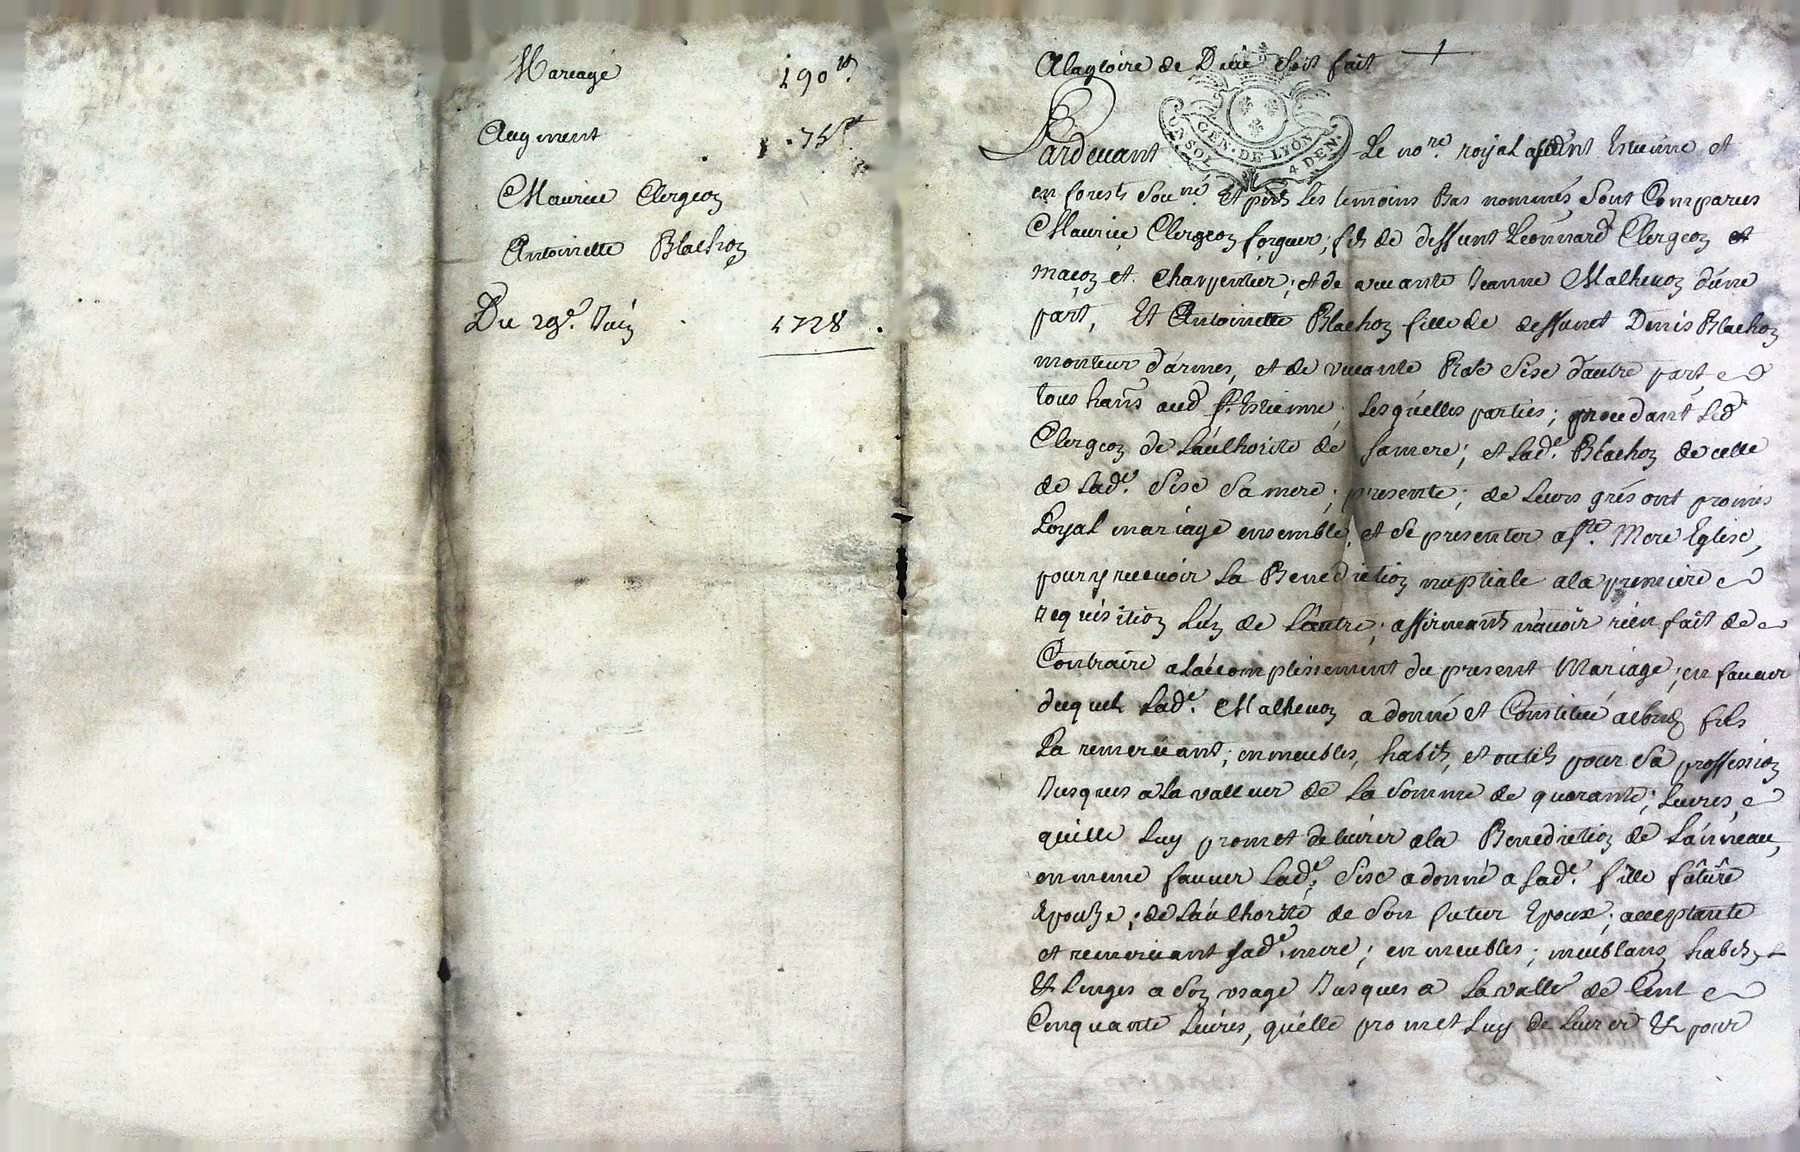 Mariage 190ᵗᵗ.
Augment .75ᵗᵗ.
Maurice Clergeon
Antoinette Blachon
Du 29ᵉ. Juin 1728.
A la gloire de Dieu soit fait
GEN. DE LYON
UN SOL 4 DEN.
Pardevant Le noʳᵉ. royal a Sᵗ Estienne et
en forests sou.ⁿᵉ Et pnts Les temoins Bas nommés sont Comparus
Maurice Clergeon forgeur, fils de deffunt Leonnard Clergeon
maçon et Charpentier; et de vivante Jeanne Malhevon d'une
part, Et Antoinette Blachon fille de deffunct Denis Blachon
monteur d'armes, et de vivante Sise d'autre part
tous hans aud Sᵗ. Estienne; Lesquelles parties; procedant Led
Clergeon de L'authorité de sa mere; et Ladᵉ. Blachon de celle
de Ladᵉ. Sise sa mere; presente; de Leurs grés ont promis
Loyal mariage ensemble, et se presenter a sᵗᵉ. Mere Eglise,
pour y recevoir La Benediction nuptiale a la premiere
requisition L'un de L'autre; affirmants n'avoir rien fait de
Contraire a L'acomplissement du present Mariage; en faveur
duquel Ladᵉ. Malhevon a donné et Constitué a fils
La remerciant; en meubles, habits, et outils pour sa proffession
Jusques a La valleur de La somme de quarante; Livres
qu'elle Luy promet delivrer a la Benediction de L'anneau,
en meme faveur Ladᵉ. Sise a donné a sadᵉ. fille future
Epouse; de L'authorité de son futur Epoux; acceptante
et remerciant sadᵉ. mere; en meubles; meublans, habits,
& Linges a son usage Jusques a La valler de Cent
Cinquante Livres, qu'elle promet Luy delivrer & pour